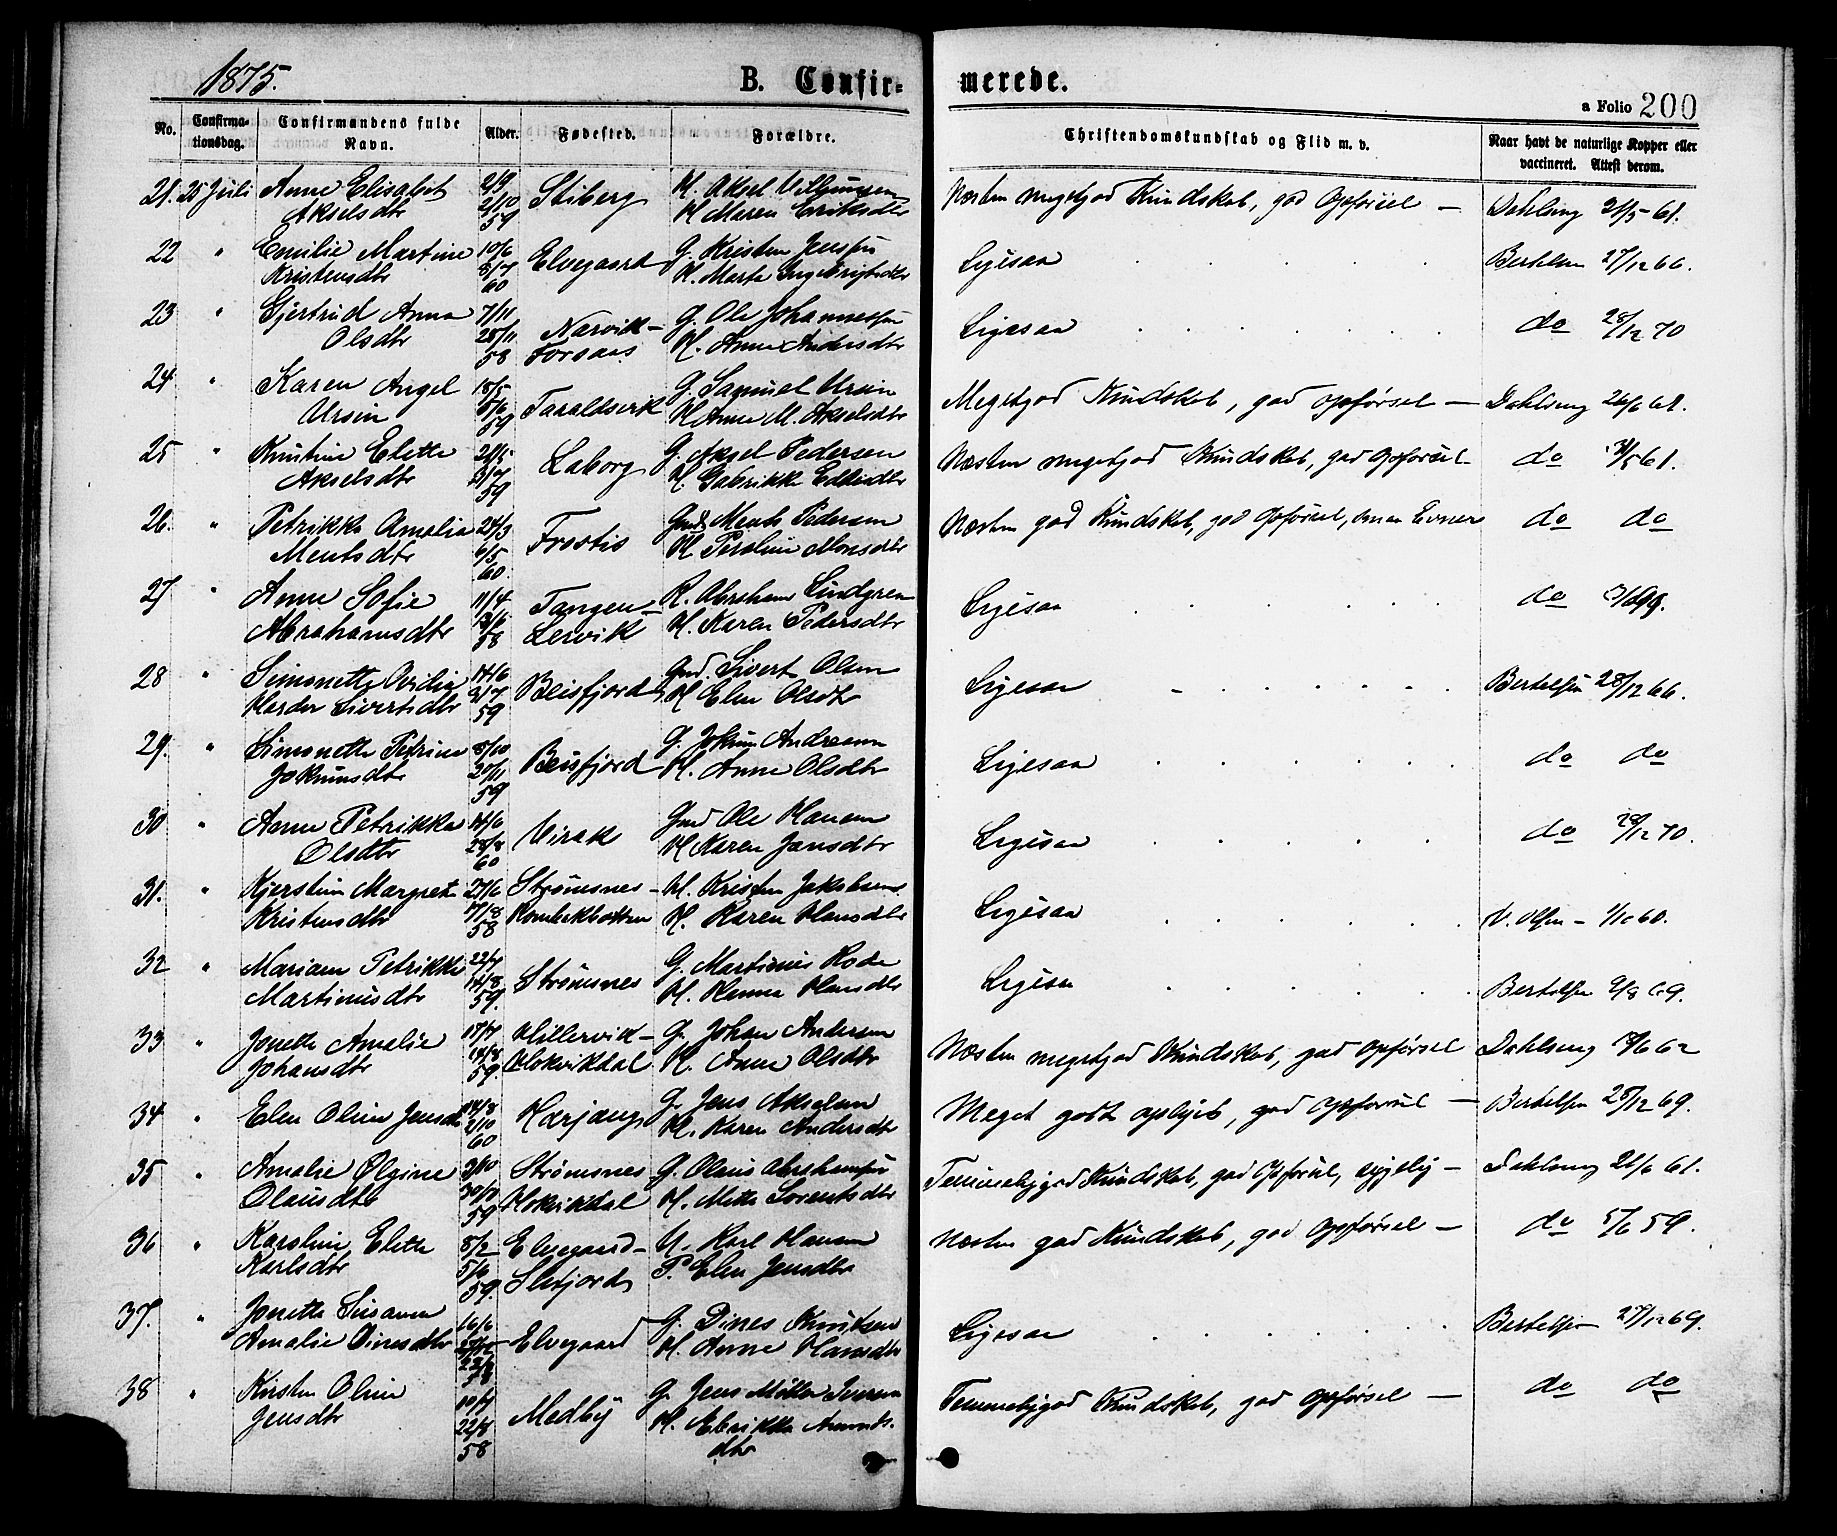 1875.
B. Confir=
merede.
a Folio 200
No.
Confirma-
tionsdag.
Confirmandens fulde
Navn.
Alder.
Fødested.
Forældre.
Christendomskundskab og Flid m. v.
Naar havt de naturlige Kopper eller
vaccineret. Attest derom.
21. 25 Juli Anne Elisabet
Akselsdtr
59
Stiberg
M. Aksel
H Maren Eriksdtr
Næsten megetgod Kundskab, god Opførsel —
Dahlseng 21/5 61.
22 " Emilie Martine
Kristensdtr
10/6
8/7
60
Elvegaard
G. Kristen Jenssen
H. Marta Ingebrigtsdtr
Ligesaa
Bertelsen 27/12 66.
23 " Gjertrud Anna
Olsdtr
7/11
28/11
58
Narvik-
Forsaas
G. Ole Johannessen
H. Anne Andersdtr
Ligesaa
do 28/12 70
24 " Karen Angel
Ursin
18/5
5/6
59
Taraldsvik
G. Samuel Ursin
H Anne M. Akselsdtr
Megetgod Kundskab, god Opførsel —
Dahlseng 26/6 61.
25 " Kristine Elette
Akselsdtr
59
Laborg
G. Aksel Pedersen
H. Gabrikke
Næsten megetgod Kundskab, god Opførsel
do 61.
26. " Petrikke Amalia
Mentsdtr
24/3
6/5
60.
Frostis
Gmd Ments Pedersen
H Peroline Monsdtr
Næsten god Kundskab, god Opførsel, svage Evner
do do
27 " Anne Sofie
Abrahamsdtr
11/4
13/6
58
Tangen-
Lervik
R. Abraham Lindgren
H. Karen Pedersdtr
Ligesaa
do
28 " Simonette Ovidia
Harder Sivertsdtr
14/6
3/7
59
Beisfjord
Gmd. Sivert Olsen
H Elen Olsdtr
Ligesaa
Bertelsen 28/12 66.
29. " Simonette Petrine
Jokumsdtr
8/10
20/11
59
Beisfjord
G. Jokum Andreasen
H. Anne Olsdtr
Ligesaa
do do
30 " Anne Petrikke
Olsdtr
14/6
28/8
60
Virak
Gmd Ole Hansen
H Karen Jensdtr
Ligesaa
do 28/12 70.
31. " Kjerstine Margrete
Kristensdtr
27/6
7/8
58
Strømsnes-
Rombakbotten
M. Kristen Jakobsen
H. Karen Hansdtr
Ligesaa
N. Olsen - 60.
32 " Mariane Petrikke
Martinusdtr
22/7
14/8
59.
Strømsnes
G. Martinus Hode
H. Hanna Hansdtr
Ligesaa
Bertelsen 2/8 69.
33 " Jonette Amalie
Johansdtr
17/7
14/8
59.
Hillervik-
Hokvikdal
G. Johan Andersen
H. Anne Olsdtr
Næsten megetgod Kundskab, god Opførsel
Dahlseng 62
34 " Elen Oline Jensdtr
14/8
2/10
60
Herjang
G. Jens Akselsen
H. Karen Andersdtr
Meget godt oplyst, god Opførsel —
Bertelsen 28/12 69.
35 " Amalie Olgine
Olausdtr
2/10
59
Strømsnes
Hokvikdal
G. Olaus Abrahamsen
H. Mette Lorentsdtr
Temmeliggod Kundskab, god Opførsel, sygelig —
Dahlseng 26/6 61.
36 " Karoline Elette
Karlsdtr
8/2
5/6
59.
Elvegaard-
Slefjord
U. Karl Hansen
P. Elen Jensdtr
Næsten god Kundskab, god Opførsel —
do 5/6 59.
37. " Jonette Susanne
Amalie Dinesdtr
16/6
Elvegaard
G. Dines Knutsen
H. Anne Hansdtr
Ligesaa
Bertelsen 27/12 69.
38 " Kirsten Oline
Jensdtr
10/7
22/8
58
Medby
G. Jens Møller Iversen
H. Ebrikke Amunds-
dtr
Temmeliggod Kundskab, god Opførsel —
do do